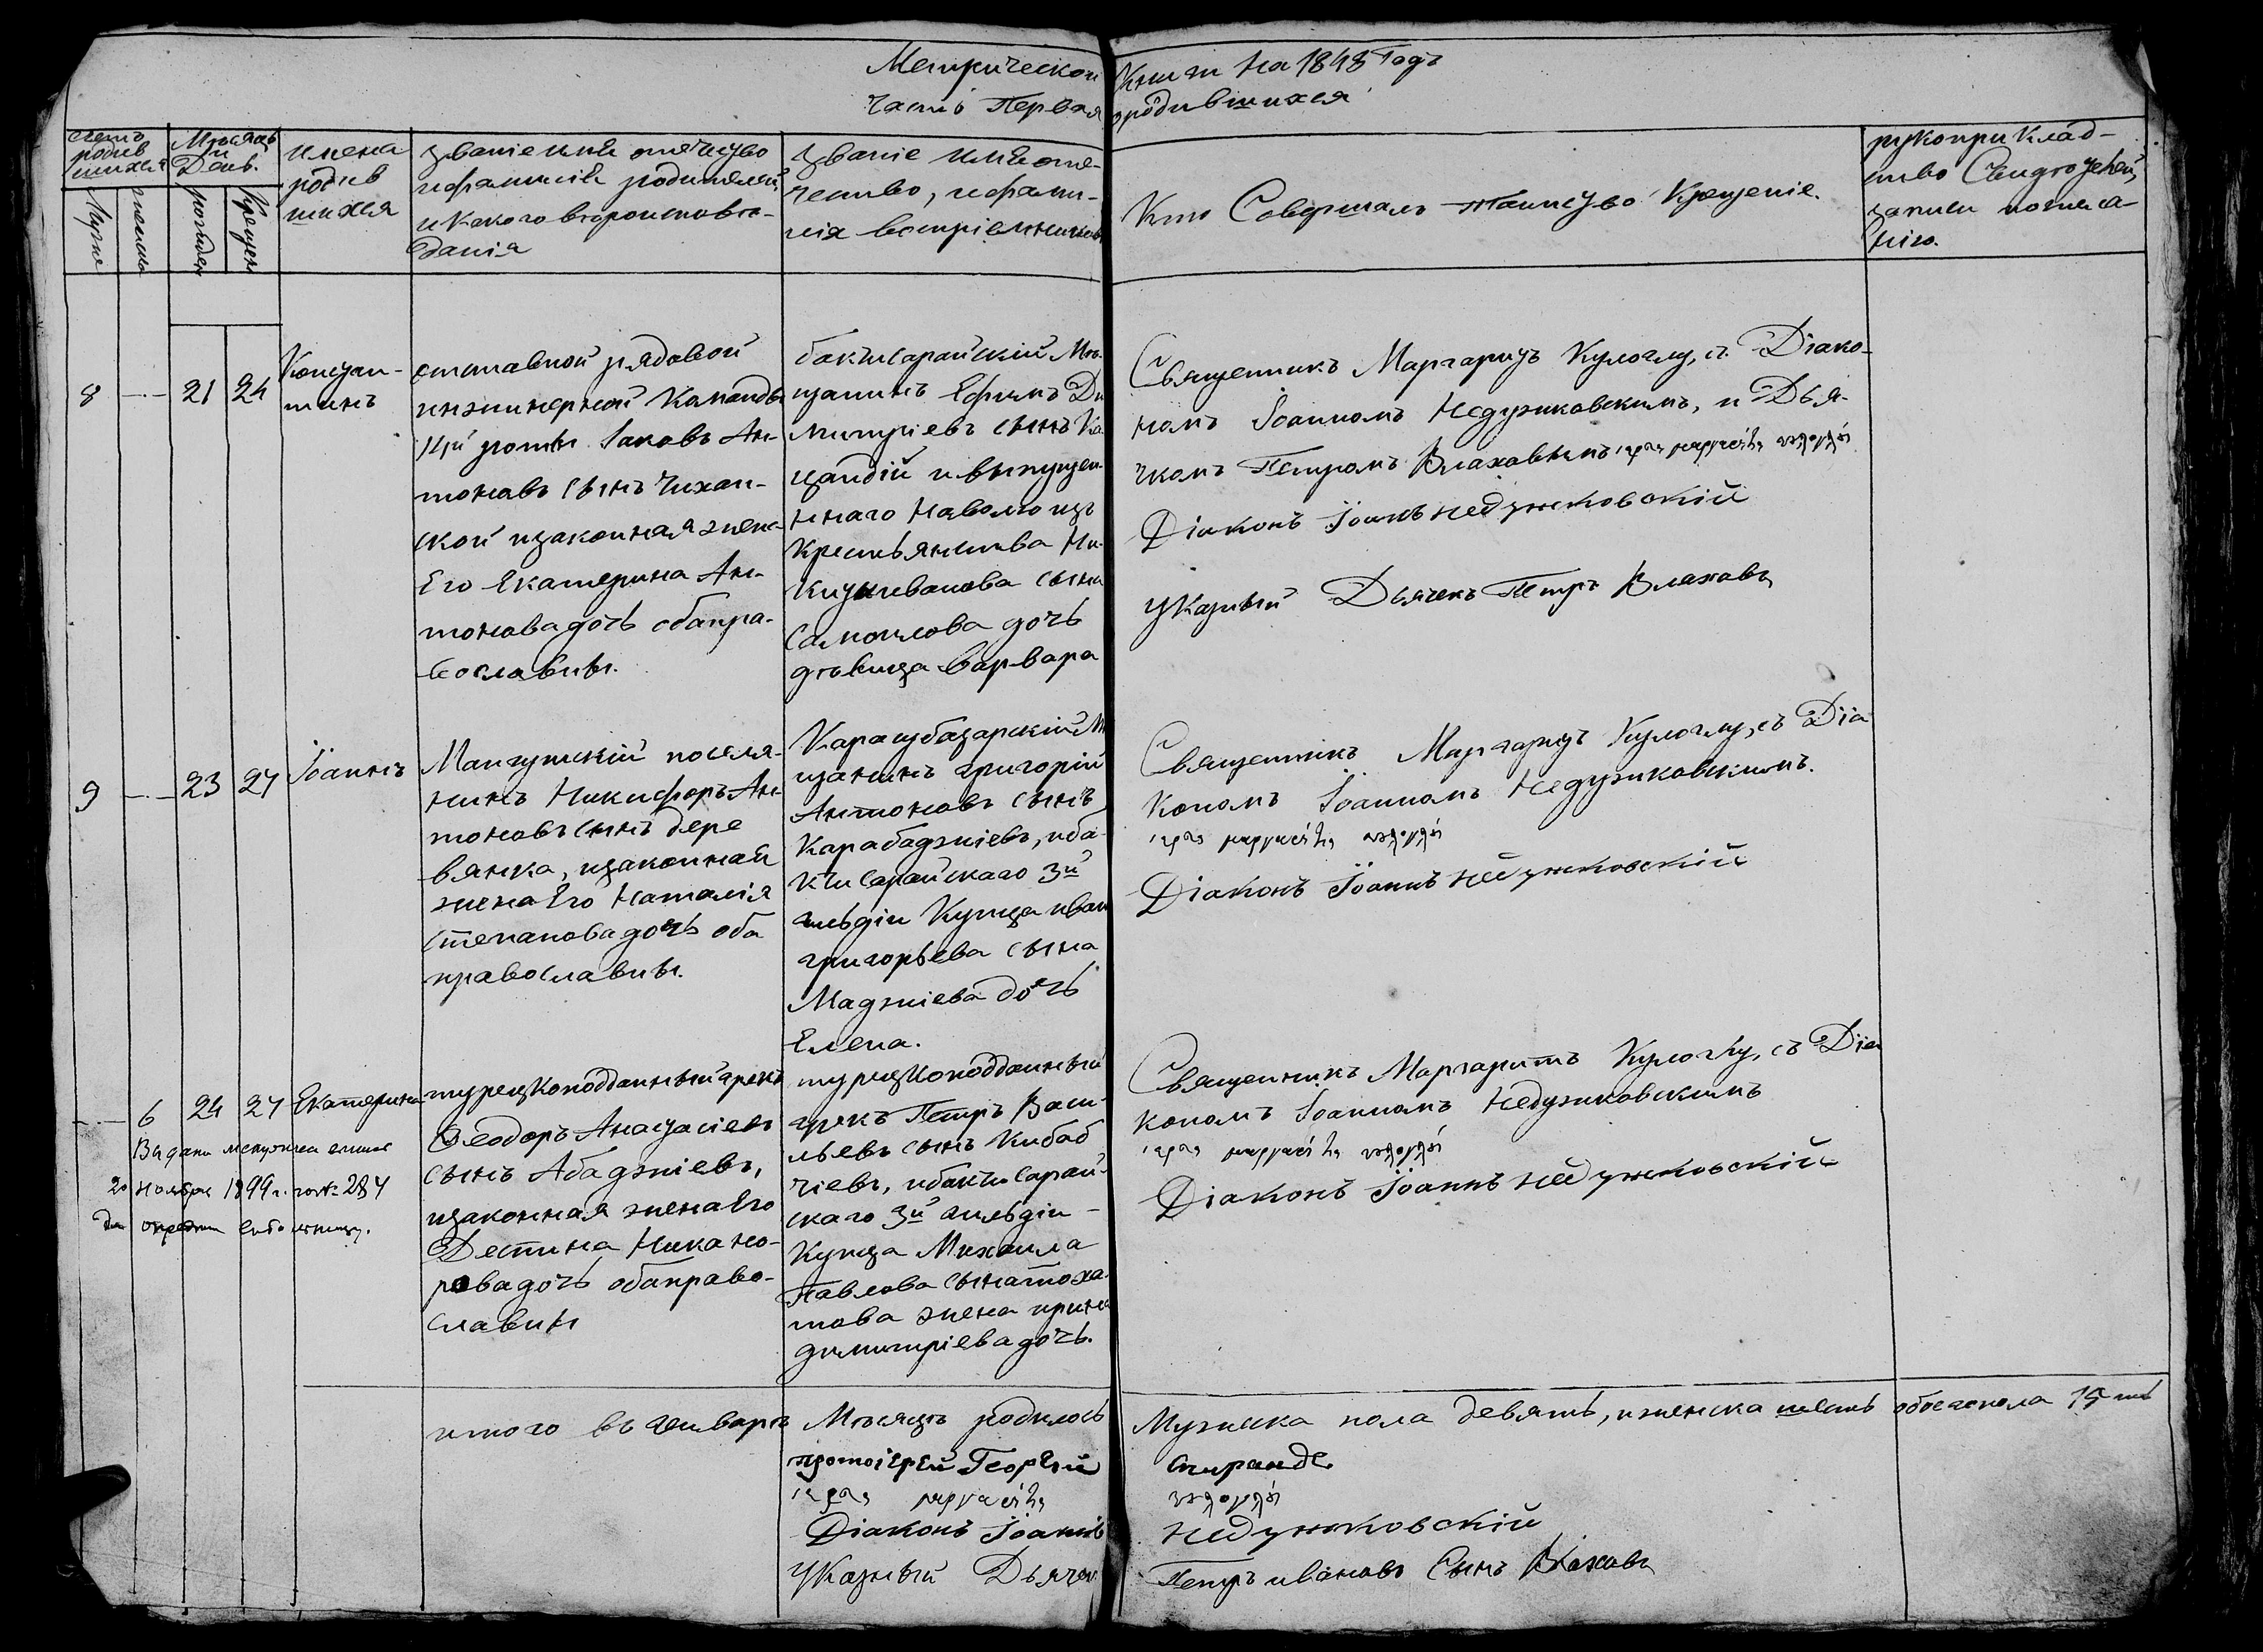 Метрической Книги на 1848 Годъ
Часть Первая о родившихся
счетъ родившихся
Мѣсяцъ и День.
имена родившихся
званіе имя отчество и фамилія родителей и какого вѣроисповѣданія
званіе имя отечество, и фамилія воспріемниковъ
Кто Совершалъ таинство Крещеніе.
рукоприкладство Свидѣтелей записи
8
21
24
Констан-
тинъ
отставной рядовой
инжинерной Команды
роты Іаковъ Ан-
тоновъ сынъ Чихан-
ской и законная жена
Его Екатерина Ан-
тонова дочь оба пра-
вославны.
бакчисарайскій Мѣ-
щанинъ Ефимъ Ди
митріевъ сынъ Ка
и выпущен-
ннаго на волю изъ
Крестьянства Ни-
киты иванова сына
Самоилова дочь
дѣвица варвара
Священникъ Маргаритъ Кулоглу, съ Діако-
номъ Іоанномъ Недужковскимъ, и Дья-
чкомъ Петромъ Влаховымъ
Діаконъ Іоанъ недужковскій
Указный Дьячекъ Петръ Влаховъ
9
23
27
Іоаннъ
Мангушскій поселя-
нинъ Никифоръ Ан-
тоновъ сынъ дере
вянка, и законная
жена Его Наталія
Степанова дочь оба
православны.
Карасубазарскій М
щанинъ григорій
Антоновъ сынъ
Карабаджіевъ, и ба-
кчисарайскаго 3й
гильдіи Купца иван
григорьева сына
Маджіева дочь
Елена.
Священникъ Маргаритъ Кулоглу, съ Діа
кономъ Іоанномъ Недужковскимъ.
Діаконъ Іоаннъ недужковскій
6
24
27
Екатерина
турецкоподданный грекъ
Ѳеодоръ Анастасіевъ
сынъ Абаджіевъ,
и законная жена Его
Деспина Никано-
рова дочь оба право-
славны
турецкоподданный
грекъ Петръ Васи-
льевъ сынъ Кибаб
чіевъ, и бакчисарай-
скаго 3й гильдіи
Купца Михаила
Павлова сына тоха-
това жена ирина
димитріева дочь.
Священникъ Маргаритъ Кулоглу, съ Діа
кономъ Іоанномъ Недужковскимъ
Діаконъ Іоаннъ недужковскій
Выдана
20 ноября 1899 г. за № 284
итого въ генварѣ Мѣсяцѣ родилось Мужеска пола девять, и женска шесть обоего пола 15ть
протоіерей Георгій Спиранде
Діаконъ Іоаннъ недужковскій
Указный Дьячек Петръ ивановъ Сынъ Влаховъ